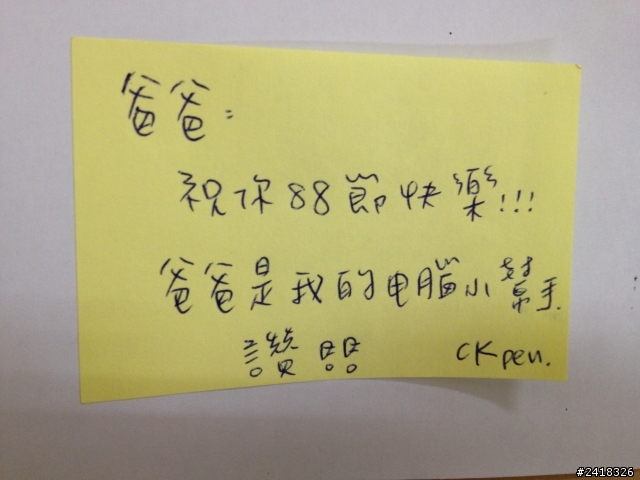 爸爸:
祝你88節快樂!!!
爸爸是我的电腦小幫手.
讚!!!!
CKpen.
#2418326